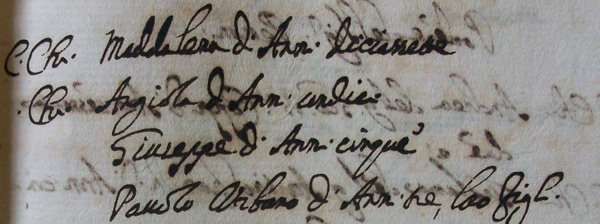 C. Ch. Maddalena d'Ann: diciannove
. Ch. Angiola d'Ann: undici
Giuseppe d'Ann: cinque
Pauolo Urbano d'Ann: tre, loro figl: